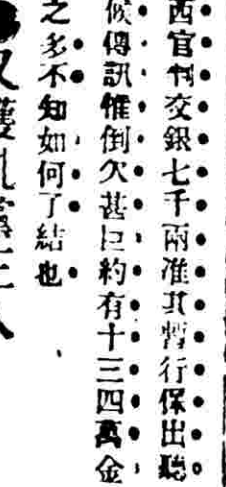 西官判交銀七千兩准其暫行保出聽
候傳訊惟倒欠甚巨約有十三四萬金
之多不知如何了結也